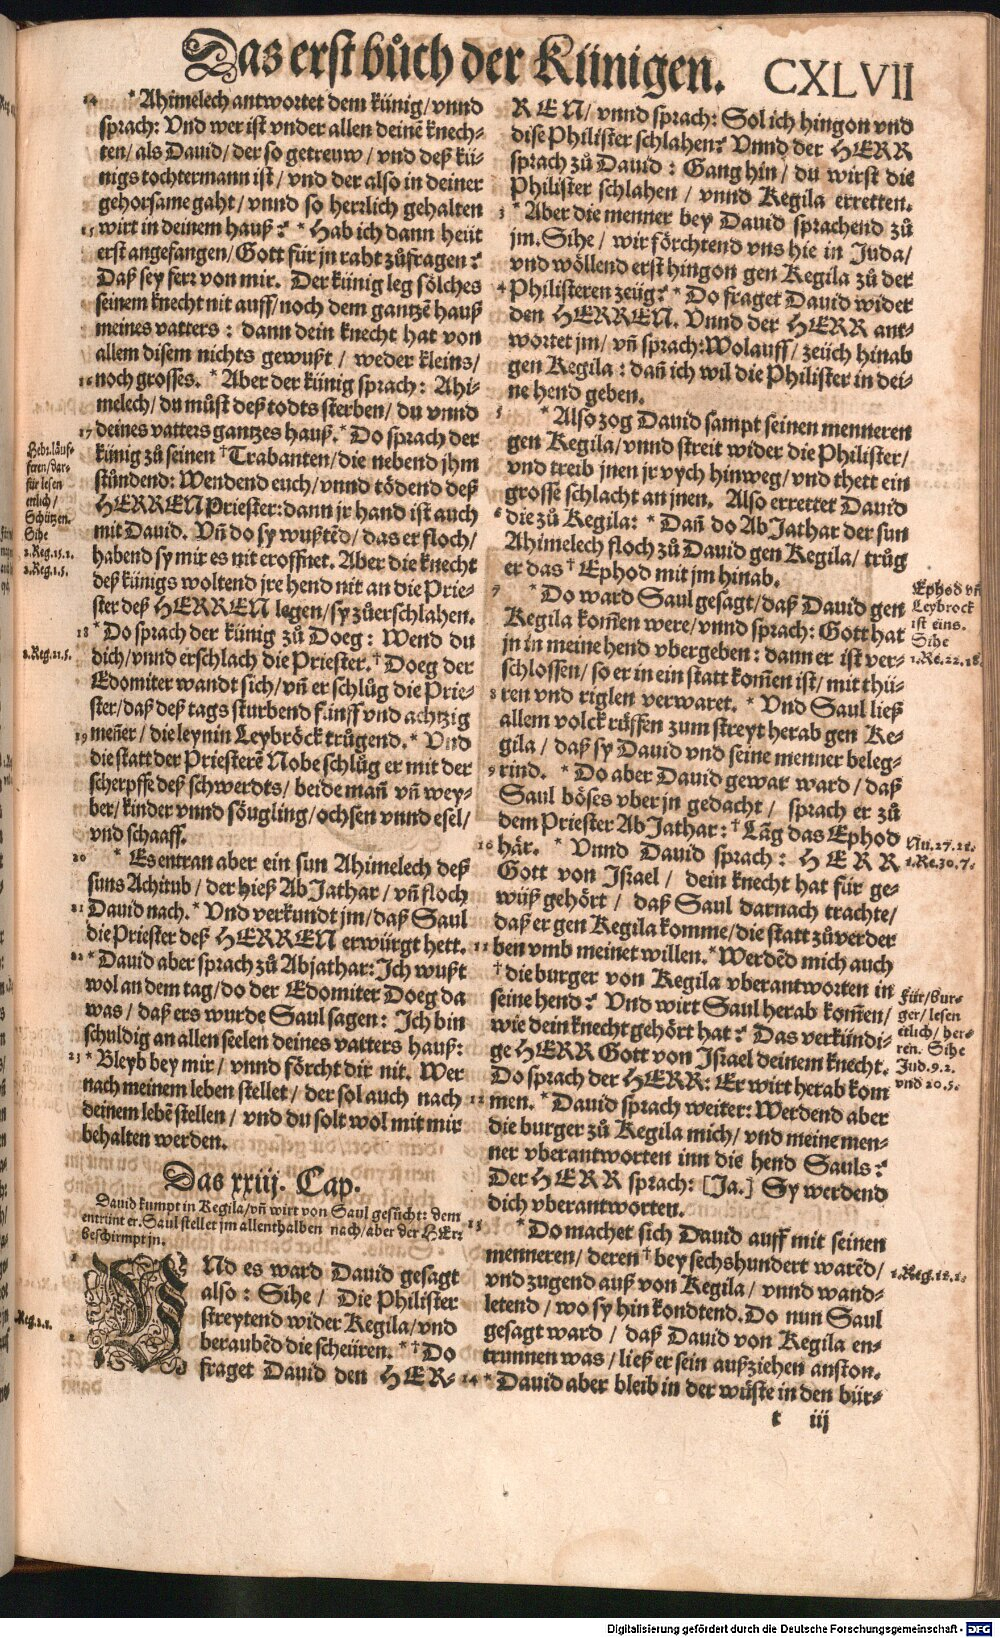 Das erst bůch der Künigen. CXLVII
14 * Ahimelech antwortet dem künig/vnnd
sprach: Vnd wer ist vnder allen deinē knech-
ten/als Dauid/der so getreuw/vnd deß kü-
nigs tochtermann ist/vnd der also in deiner
gehorsame gaht/vnnd so herrlich gehalten
15 wirt in deinem hauß? * Hab ich dann heüt
erst angefangen/Gott für jn raht zůfragen?
Daß sey ferr von mir. Der künig leg sölches
seinem knecht nit auff/noch dem gantzē hauß
meines vatters: dann dein knecht hat von
allem disem nichts gewußt/weder kleins/
16 noch grosses. * Aber der künig sprach: Ahi-
melech/du můst deß todts sterben/du vnnd
17 deines vatters gantzes hauß. * Do sprach der
künig zů seinen † Trabanten/die nebend jhm
stůndend: Wendend euch/vnnd tödend deß
HERREN Priester: dann jr hand ist auch
mit Dauid. Vñ do sy wußtēd/das er floch/
habend sy mir es nit eroffnet. Aber die knecht
deß künigs woltend jre hend nit an die Prie-
ster deß HERREN legen/sy zůerschlahen.
18 * Do sprach der künig zů Doeg: Wend du
dich/vnnd erschlach die Priester. † Doeg der
Edomiter wandt sich/vñ er schlůg die Prie-
ster/daß deß tags sturbend fünff vnd achtzig
19 meñer/die leynin Leybröck trůgend. * Vnd
die statt der Priesterē Nobe schlůg er mit der
scherpffe deß schwerdts/beide mañ vñ wey-
ber/kinder vnnd söugling/ochsen vnnd esel/
vnd schaaff.
20 * Es entran aber ein sun Ahimelech deß
suns Achitub/der hieß AbJathar/vñ floch
21 Dauid nach. * Vnd verkundt jm/daß Saul
die Priester deß HERREN erwürgt hett.
22 * Dauid aber sprach zů Abjathar: Ich wußt
wol an dem tag/do der Edomiter Doeg da
was/daß ers wurde Saul sagen: Ich bin
schuldig an allen seelen deines vatters hauß:
23 * Bleyb bey mir/vnnd förcht dir nit. Wer
nach meinem leben stellet/der sol auch nach
deinem lebē stellen/vnd du solt wol mit mir
behalten werden.
Das xxiij. Cap.
Dauid kumpt in Kegila/vñ wirt von Saul gesůcht: dem
entrünt er. Saul stellet jm allenthalben nach/aber der HErr
beschirmpt jn.
1 VNd es ward Dauid gesagt
also: Sihe/Die Philister
streytend wider Kegila/vnd
2 beraubēd die scheüren. * † Do
fraget Dauid den HER-
Hebr. läuf-
feren/dar-
für lesen
etlich/
Schützen.
Sihe
2.Reg.15.1.
3.Reg.1.5.
3.Reg.21.5.
Reg.2.1.
REN/vnnd sprach: Sol ich hingon vnd
dise Philister schlahen? Vnnd der HERR
sprach zů Dauid: Gang hin/du wirst die
Philister schlahen/vnnd Kegila erretten.
3 * Aber die menner bey Dauid sprachend zů
jm. Sihe/wir förchtend vns hie in Juda/
vnd wöllend erst hingon gen Kegila zů der
4 Philisteren zeüg? * Do fraget Dauid wider
den HERREN. Vnnd der HERR ant-
wortet jm/vñ sprach: Wolauff/zeüch hinab
gen Kegila: dañ ich wil die Philister in dei-
ne hend geben.
5 * Also zog Dauid sampt seinen menneren
gen Kegila/vnnd streit wider die Philister/
vnd treib jnen jr vych hinweg/vnd thett ein
grosse schlacht an jnen. Also errettet Dauid
6 die zů Kegila: * Dañ do AbJathar der sun
Ahimelech floch zů Dauid gen Kegila/trůg
er das † Ephod mit jm hinab.
7 * Do ward Saul gesagt/daß Dauid gen
Kegila kom̃en were/vnnd sprach: Gott hat
jn in meine hend vbergeben: dann er ist ver-
schlossen/so er in ein statt kom̃en ist/mit thü-
8 ren vnd riglen verwaret. * Vnd Saul ließ
allem volck růffen zum streyt herab gen Ke-
gila/daß sy Dauid vnd seine menner beleg-
9 rind. * Do aber Dauid gewar ward/daß
Saul böses vber jn gedacht/sprach er zů
dem Priester AbJathar: † Lāg das Ephod
10 här. * Vnnd Dauid sprach: HERR
Gott von Israel/dein knecht hat für ge-
wüß gehört/daß Saul darnach trachte/
daß er gen Kegila komme/die statt zůverder
11 ben vmb meinet willen. * Werdēd mich auch
† die burger von Kegila vberantworten in
seine hend? Vnd wirt Saul herab kom̃en/
wie dein knecht gehört hat? Das verkündi-
ge HERR Gott von Israel deinem knecht.
Do sprach der HERR: Er wirt herab kom
12 men. * Dauid sprach weiter: Werdend aber
die burger zů Kegila mich/vnd meine men-
ner vberantworten inn die hend Sauls?
Der HERR sprach: [Ja.] Sy werdend
dich vberantworten.
13 * Do machet sich Dauid auff mit seinen
menneren/deren † bey sechshundert warēd/
vnd zugend auß von Kegila/vnnd wand-
letend/wo sy hin kondtend. Do nun Saul
gesagt ward/daß Dauid von Kegila en-
trunnen was/ließ er sein außziehen anston.
14 * Dauid aber bleib in der wůste in den bür-
t iij
Ephod vñ
Leybrock
ist eins.
Sihe
1.Re.22.18.
Nu.27.21.
1.Re.30.7.
Für/bur-
ger/lesen
etlich/her-
ren. Sihe
Jud.9.2.
vnd 20.5.
1.Reg.22.2.
Digitalisierung gefördert durch die Deutsche Forschungsgemeinschaft - DFG